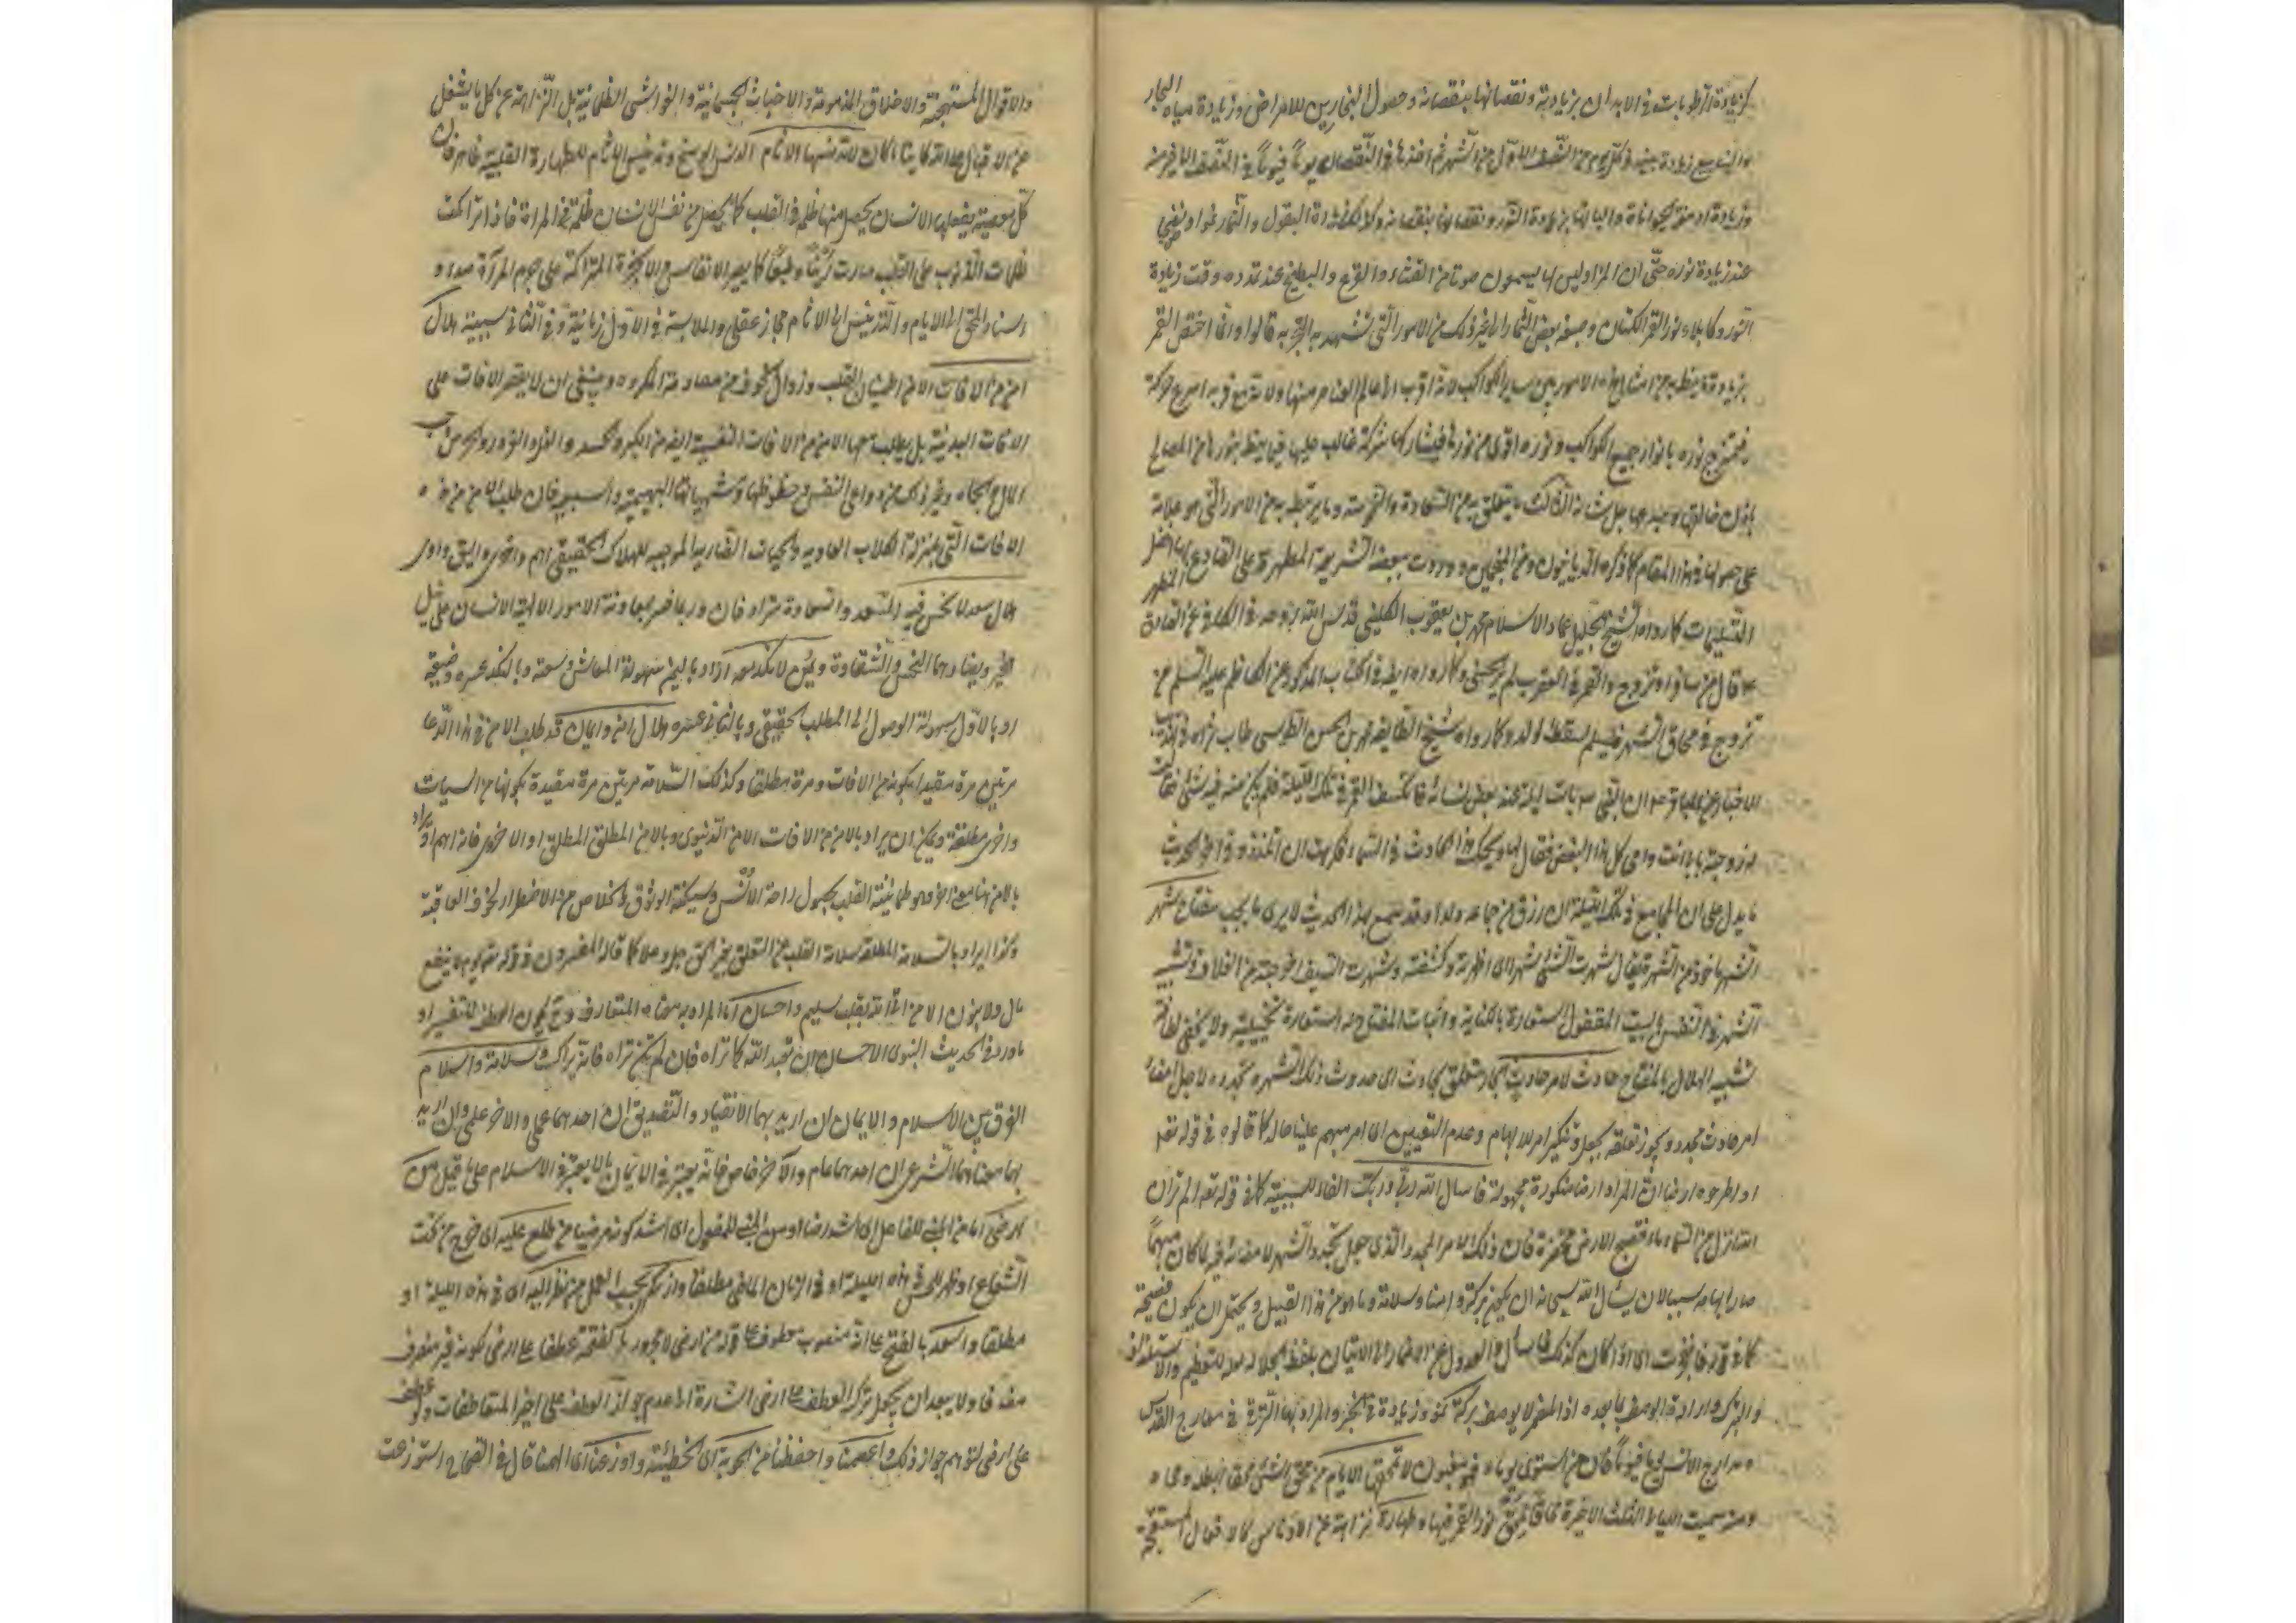 كزيادة الرطوبات في الابدان بزيادته ونقصانها بنقصانه وحصول البحارين للامراض وزيادة مياه البحار
والينابيع زيادة بينة في كل يوم من النصف الاول من الشهر ثم اخذها في النقصان يوما فيوما في النصف الاخير منه
وزيادة ادمغة الحيوانات والبانها بزيادة النور ونقصانها بنقصانه وكذلك زيادة البقول والثمار نموا ونضجا
عند زيادة نوره حتى ان المزاولين لها يسمعون صوتا من القثاء والقرع والبطيخ عند تمدده وقت زيادة
النور وكابلاء نور القمر الكتان وصبغه بعض الثمار الى غير ذلك من الامور التي تشهد به التجربة قالوا وانما اختص القمر
بزيادة ما يظهر من امثال هذه الامور من بين سائر الكواكب لانه اقرب الى عالم العناصر منها ولانه مع قربه اسرع حركة
فيمتزج نوره بانوار جميع الكواكب ونوره اقوى من نورها فيشاركها شركة غالب عليها فيما يتعلق بنورها من المصالح
باذن خالقها ومبدعها جل شانه الثالث ما يتعلق به من السعادة والنحوسة وما يرتبط به من الامور التي هو علامة
على حصولها في هذا المقام كما ذكره الديانيون من المنجمين ووردت ببعضه الشريعة المطهرة على الصادع بها افضل
التسليمات كما رواه الشيخ الجليل عماد الاسلام محمد بن يعقوب الكليني قدس الله روحه في الكافي عن الصادق
ع قال من سافر او تزوج والقمر في العقرب لم ير الحسنى وكما رواه ايضا في الكتاب المذكور عن الكاظم عليه السلم من
تزوج في محاق الشهر فليسلم لسقط الولد وكما رواه شيخ الطائفة محمد بن الحسن الطوسي طاب ثراه في تهذيب
الاخبار عن الباقر ع ان النبي ص بات ليلة عند بعض نسائه فانكسف القمر في تلك الليلة فلم يكن منه فيه شئ فقالت
له زوجته بابي انت وامي كل هذا البغض فقال لها ويحك هذا الحادث في السماء فكرهت ان اتلذذ وفي اخر الحديث
ما يدل على ان المجامع في تلك الليلة ان رزق من جماعه ولدا وقد سمع بهذا الحديث لا يرى ما يحب مفتاح شهر
الشهر ماخوذ من الشهرة يقال شهرت الشئ شهرا اى اظهرته وكشفته وشهرت السيف اخرجته من الغلاف وتشبيه
الشهر في النفس بالبيت المقفول استعارة بالكناية واثبات المفتاح له استعارة تخييلية ولا يخفى لطافة
تشبيه الهلال بالمفتاح حادث لامر حادث الجار متعلق بحادث اى حدوث ذلك الشهر وتجدده لاجل امضاء
امر حادث مجدد ويجوز تعلقه بجعل وتنكير امر للابهام وعدم التعيين اى امر مبهم علينا حاله كما قالوه في قوله تعه
او اطرحوه ارضا ان المراد ارضا منكورة مجهولة فاسال الله ربي وربك الفاء للسببية كما في قوله تعه الم تر ان
الله انزل من السماء ماء فتصبح الارض مخضرة فان ذلك الامر المجدد الذي جعل تجدد الشهر لامضائه فيه لما كان مبهما
صار ابهامه سببا لان يسال الله سبحانه ان يكون بركة وامنا وسلامة وما هو من هذا القبيل ويحتمل ان يكون فصيحة
كما في قوله فانفجرت اى اذا كان كذلك فاسال والعدول عن الاضمار الى الاتيان بلفظ الجلالة للتعظيم والاستلذاذ
والتبرك وارادة الوصف بما بعده اذ المضمر لا يوصف بركة نمو وزيادة في الخير والمراد بها الترقي في معارج القدس
ومدارج الانس يوما فيوما فان من استوى يوماه فهو مغبون لا تمحقها الايام من محق الشئ محقا ابطله ومحاه
ومنه سميت الليالى الثلث الاخيرة محاقا لمحق نور القمر فيها وطهارة نزاهة من الادناس كالافعال المستقبحة
والاقوال المستهجنة والاخلاق المذمومة والاخباث الجسمانية والغواشى الظلمانية بل النزاهة عن كل ما يشغل
عن الاقبال على الله كائنا ما كان لا تدنسها الاثام الدنس الوسخ وتدنيس الاثام للطهارة القلبية ظاهر فان
كل معصية يفعلها الانسان يحصل منها ظلمة في القلب كما يحصل من نفس الانسان ظلمة في المرآة فاذا تراكمت
ظلمات الذنوب على القلب صارت رينا وطبعا كما يصير الانفاس والابخرة المتراكمة على جرم المرآة صدء و
اسناد المحق الى الايام والتدنيس الى الاثام مجاز عقلي والملابسة في الاول زمانية وفي الثاني سببية هلال
امن من الافات الامن اطمينان القلب وزوال الخوف من مصادمة المكروه وينبغي ان لا يقصر الافات على
الافات البدنية بل يطلب معها الامن من الافات النفسية ايضا من الكبر والحسد والغل والغرور والحرص وحب
المال والجاه وغير ذلك من دواعى النفس وحظوظها وشهواتها البهيمية والسبعية فان طلب الامن من هذه
الافات التي بمنزلة الكلاب العاوية والحيات الضارية الموجبة للهلاك الحقيقي اهم واحرى واليق واولى
هلال سعد لا نحس فيه السعد والسعادة مترادفان وربما فسر بمعاونة الامور الالهية الانسان على نيل
الخير ويضادهما النحس والشقاوة ويمن لا نكد معه اراد باليمن سهولة المعاش وسعته وبالنكد عسره وضيقه
او بالاول سهولة الوصول الى المطلب الحقيقي وبالثاني عسره هلال امن وايمان قد طلب الامن في هذا الدعا
مرتين مرة مقيدا بكونه من الافات ومرة مطلقا وكذلك السلامة مرتين مرة مقيدة بكونها من السيات
واخرى مطلقة ويمكن ان يراد بالامن من الافات الامن الدنيوى وبالامن المطلق المطلق او الاخروى فانه اهم او يراد
بالامن هنا معنى اخر وهو طمانينة القلب بحصول راحة الانس وسكينة الوثوق والخلاص من الاضطرار لخوف العاقبة
وكذا يراد بالسلامة المطلقة سلامة القلب عن التعلق بغير الحق جل وعلا كما قاله المفسرون في قوله تعه يوم لا ينفع
مال ولا بنون الا من اتى الله بقلب سليم واحسان اما المراد به معناه المتعارف وح يكون العطف للتفسير او
ما ورد في الحديث النبوى الاحسان ان تعبد الله كانك تراه فان لم تكن تراه فانه يراك وسلامة واسلام
الفرق بين الاسلام والايمان ان اريد بهما الانقياد والتصديق ان احدهما عملي والاخر علمي وان اريد
بهما معناهما الشرعي ان احدهما عام والاخر خاص فانه يعتبر في الايمان ما لا يعتبر في الاسلام على ما قيل من
ارضى اما من المبنى للفاعل اى اشد رضا او من المبنى للمفعول اى اشد كونه مرضيا من طلع عليه اى خرج من تحت
الشعاع او ظهر للحس في هذه الليلة او في الزمان الماضى مطلقا وازكى بحسب العمل من نظر اليه اى في هذه الليلة او
مطلقا واسعد بالفتح على انه منصوب بعطفه على قوله من ارضى لا مجرور بالفتحة عطفا على ارضى كونه غير منصرف
مضافا ولا يبعد ان يجعل ترك العطف على ارضى اشارة الى عدم جواز العطف على اخير المتعاطفات ولو عطف
على ارضى لتوهم جواز ذلك واعصمنا واحفظنا من الحوبة اى الخطيئة واوزعنا اى الهمنا قال في الصحاح استوزعت